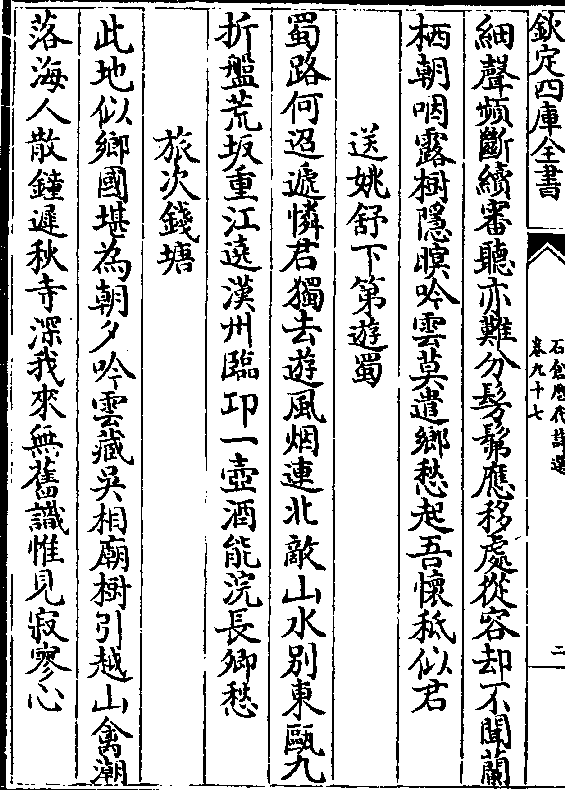 欽定四庫全書
石倉歷代詩選
卷九十七
二
細聲頻斷續審聽亦難分髣髴應移處從容却不聞蘭
栖朝咽露樹隱暝吟雲莫遣鄉愁起吾懷秪似君
送姚舒下第遊蜀
蜀路何迢遞憐君獨去遊風烟連北敵山水别東甌九
折盤荒坂重江遶漢州臨邛一壺酒能浣長卿愁
旅次錢塘
此地似鄉國堪為朝夕吟雲藏吳相廟樹引越山禽潮
落海人散鐘遲秋寺深我來無舊識惟見寂寥心